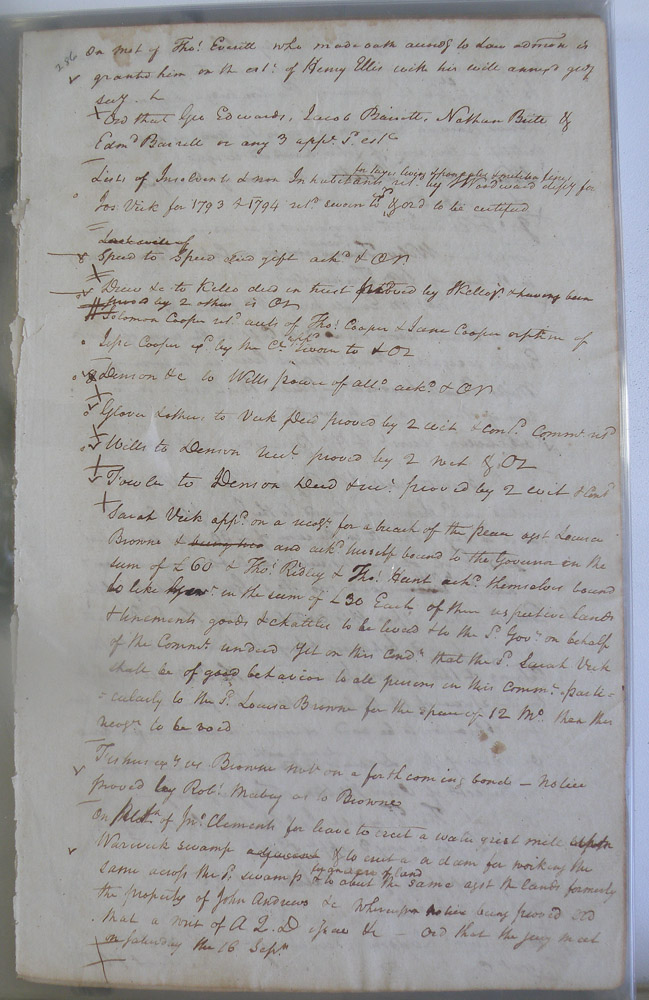 286
On mot of Tho.s Everitt who made oath accord.g to Law admon is
granted him on the est.e of Henry Ellis with his will annex'd
secy
Ord that Geo Edwards, Jacob Barrett, Nathan Britt &
Edm.d Barrett or any 3 app.r s.d est.e
for taxes levies &
Lists of Insolvents & non Inhabitants ret.d by Woodward depty for
Jos: Vick for 1793 & 1794 ret.d sworn to & ord to be certified
Last will of
Speed to Speed deed gift ack.d & OR
Drew &c to Kello deed in trust proved by Kello & having been
proved by 2 others is OR
Solomon Cooper ret.d accts of Tho.s Cooper & Jane Cooper orphan of
Cooper by the Sworn to & OR
Denson &c to Wills power of att.o ack.d & OR
Glover & others to Vick Deed proved by 2 wit & Comm.n ret.d
Wills to Denson proved by 2 wit & OR
Fowler to Denson Deed & proved by 2 wit &
Sarah Vick app.d on a recog.e for a breach of the peace ag.st Louisa
Browne & and ack.d himself bound to the Governor in the
sum of £60 & Tho.s Ridley & Tho.s Hunt ack.d themselves bound
to like in the sum of £30 Each of their respective lands
& tenements goods & chattels to be levied & to the s.d Gov.r on behalf
of the Comm.w rendered Yet on this cond.n that the s.d Sarah Vick
shall be of good behavior to all persons in this Comm.w parti=
=cularly to the s.d Louisa Browne for the space of 12 Mo. then this
recog.e to be void
vs Browne mot on a forthcoming bond — Notice
proved by Rob.t Mabry as to Browne
On of Jn.o Clements for leave to erect a water grist mill
Warwick swamp adjacent & to erect a dam for working the
an acre of land
same across the s.d swamp & to abut the same ag.st the lands formerly
the property of John Andrews &c Whereupon notice being proved ord
that a writ of A Q. D issue &c — ord that the jury meet
on Saturday the 16 Sep.r